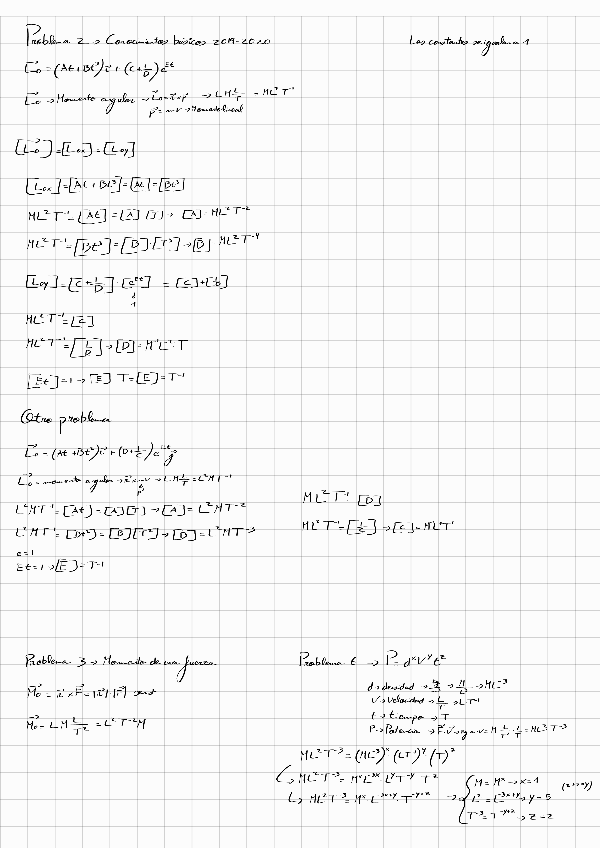 Problema 2 → Conocimientos básicos 2019-2020
Las constantes se igualan a 1
L₀ = (At + Bt³) i + (C + 1/D) e^Et
L₀ → Momento angular → L₀ = r × p → L M L/T = ML² T⁻¹
p = m·v → Momento lineal
[L₀] = [Lox] = [Loy]
[Lox] = [At + Bt³] = [At] = [Bt³]
ML² T⁻¹ = [At] = [A] [T] → [A] = ML² T⁻²
ML² T⁻¹ = [Bt³] = [B]·[T³] → [B] = ML² T⁻⁴
[Loy] = [C + 1/D]·[e^Et] = [C] + [1/D]
1
ML² T⁻¹ = [C]
ML² T⁻¹ = [1/D] → [D] = M⁻¹ L⁻² · T
[Et] = 1 → [E] T = [E] = T⁻¹
Otro problema
L₀ = (At + Bt²) i + (D + 1/C) e^Et j
L₀ = momento angular → r × m·v → L·M L/T = L² M T⁻¹
p
L² M T⁻¹ = [At] = [A] [T] → [A] = L² M T⁻²
L² M T⁻¹ = [Bt²] = [B] [T²] → [B] = L² M T⁻³
e = 1
Et = 1 → [E] = T⁻¹
ML² T⁻¹ [D]
ML² T⁻¹ = [1/C] → [C] = M⁻¹ L⁻² T¹
Problema 3 → Momento de una fuerza
M₀ = r × F = |r|·|F| sen α
M₀ = L M L/T² = L² T⁻² M
Problema 6 → P = d^x V^y t^z
d → densidad → → M/L³ → ML⁻³
V → Velocidad → L/T → L T⁻¹
t → tiempo → T
P → Potencia → F·v
ML² T⁻³ = (ML⁻³)^x (LT⁻¹)^y (T)^z
↳ ML² T⁻³ = M^x L⁻³ˣ L^y T^-y T^z
↳ ML² T⁻³ = M^x L^-3x+y · T^-y+z →
M = M^x → x = 1
L² = L^-3x+y → y = 5
T⁻³ = T^-y+z → z = 2